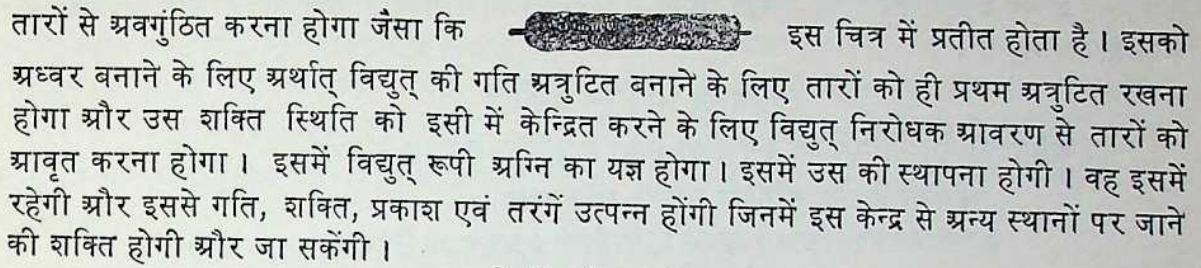 तारों से अवगुंठित करना होगा जैसा कि इस चित्र में प्रतीत होता है । इसको
अध्वर बनाने के लिए अर्थात् विद्युत् की गति अत्रुटित बनाने के लिए तारों को ही प्रथम अत्रुटित रखना
होगा और उस शक्ति स्थिति को इसी में केन्द्रित करने के लिए विद्युत् निरोधक आवरण से तारों को
आवृत करना होगा । इसमें विद्युत् रूपी अग्नि का यज्ञ होगा । इसमें उस की स्थापना होगी । वह इसमें
रहेगी और इससे गति, शक्ति, प्रकाश एवं तरंगें उत्पन्न होंगी जिनमें इस केन्द्र से अन्य स्थानों पर जाने
की शक्ति होगी और जा सकेंगी ।